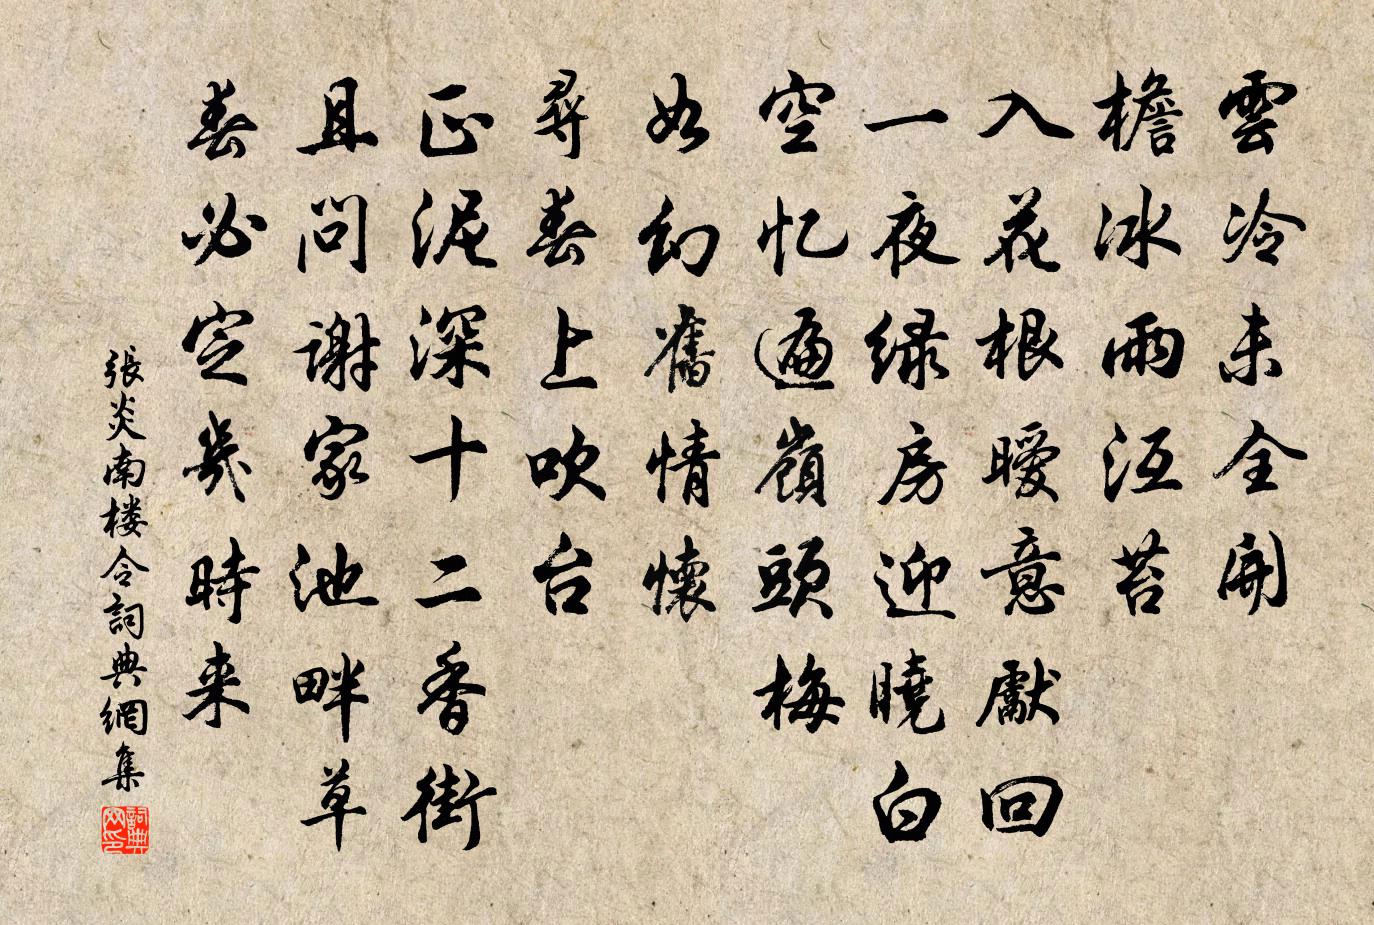 雲冷未全開
檐冰雨沍苔
入花根曖意獻回
一夜绿房迎曉白
空忆遍嶺頭梅
如幻舊情懷
尋春上吹台
正泥深十二香街
且問謝家池畔草
春必定幾時来
張炎南楼令詞典網集
詞典网印